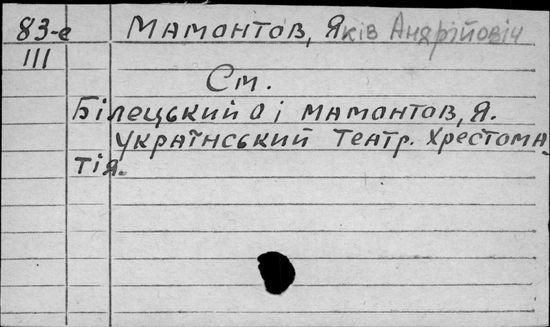 83-е Мамонтов, Яків Андрійовіч
III
См.
Білецький О і Мамонтов, Я.
Український театр. Хрестома-
тія.